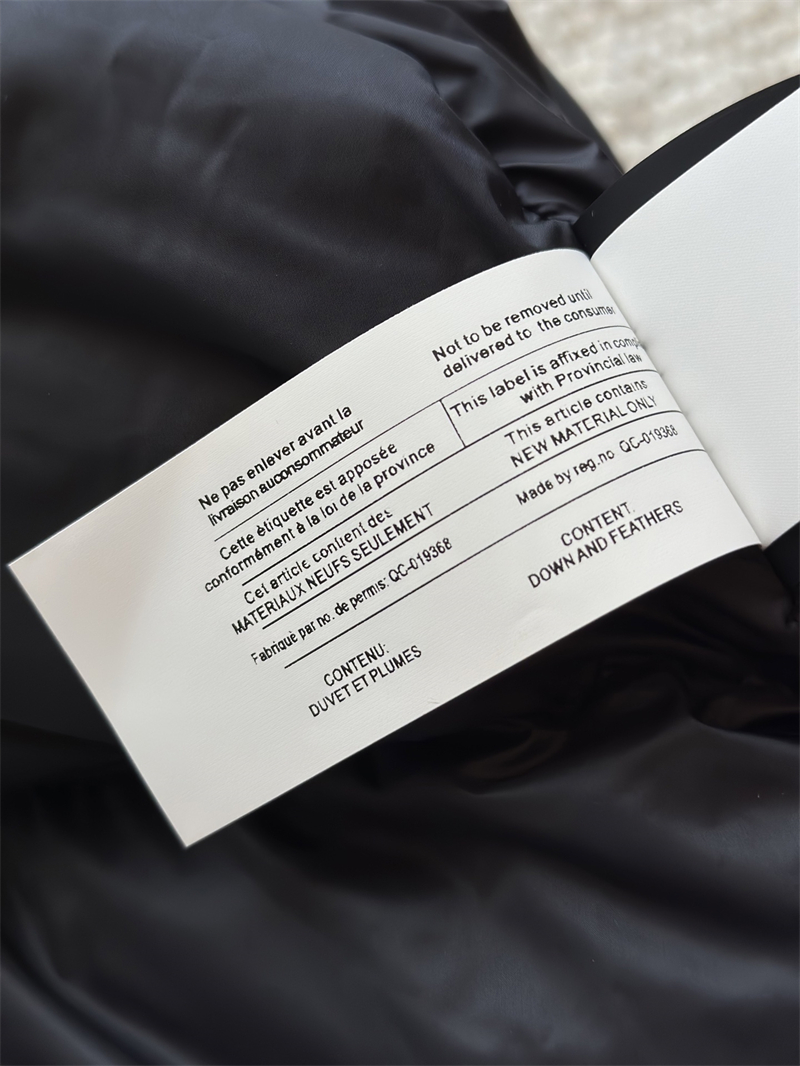 Not to be removed until
delivered to the consumer
This label is affixed in
with Provincial law
This article contains
NEW MATERIAL ONLY
Made by reg.no QC-019368
CONTENT.
DOWN AND FEATHERS
Ne pas enlever avant la
livraison auconsommateur
Cette ètiquette est apposée
conformément à la loi de la province
Cet article contient des
MATERIAUX NEUFS SEULEMENT
Fabriquè par no. de permis: QC-019368
CONTENU:
DUVET ET PLUMES